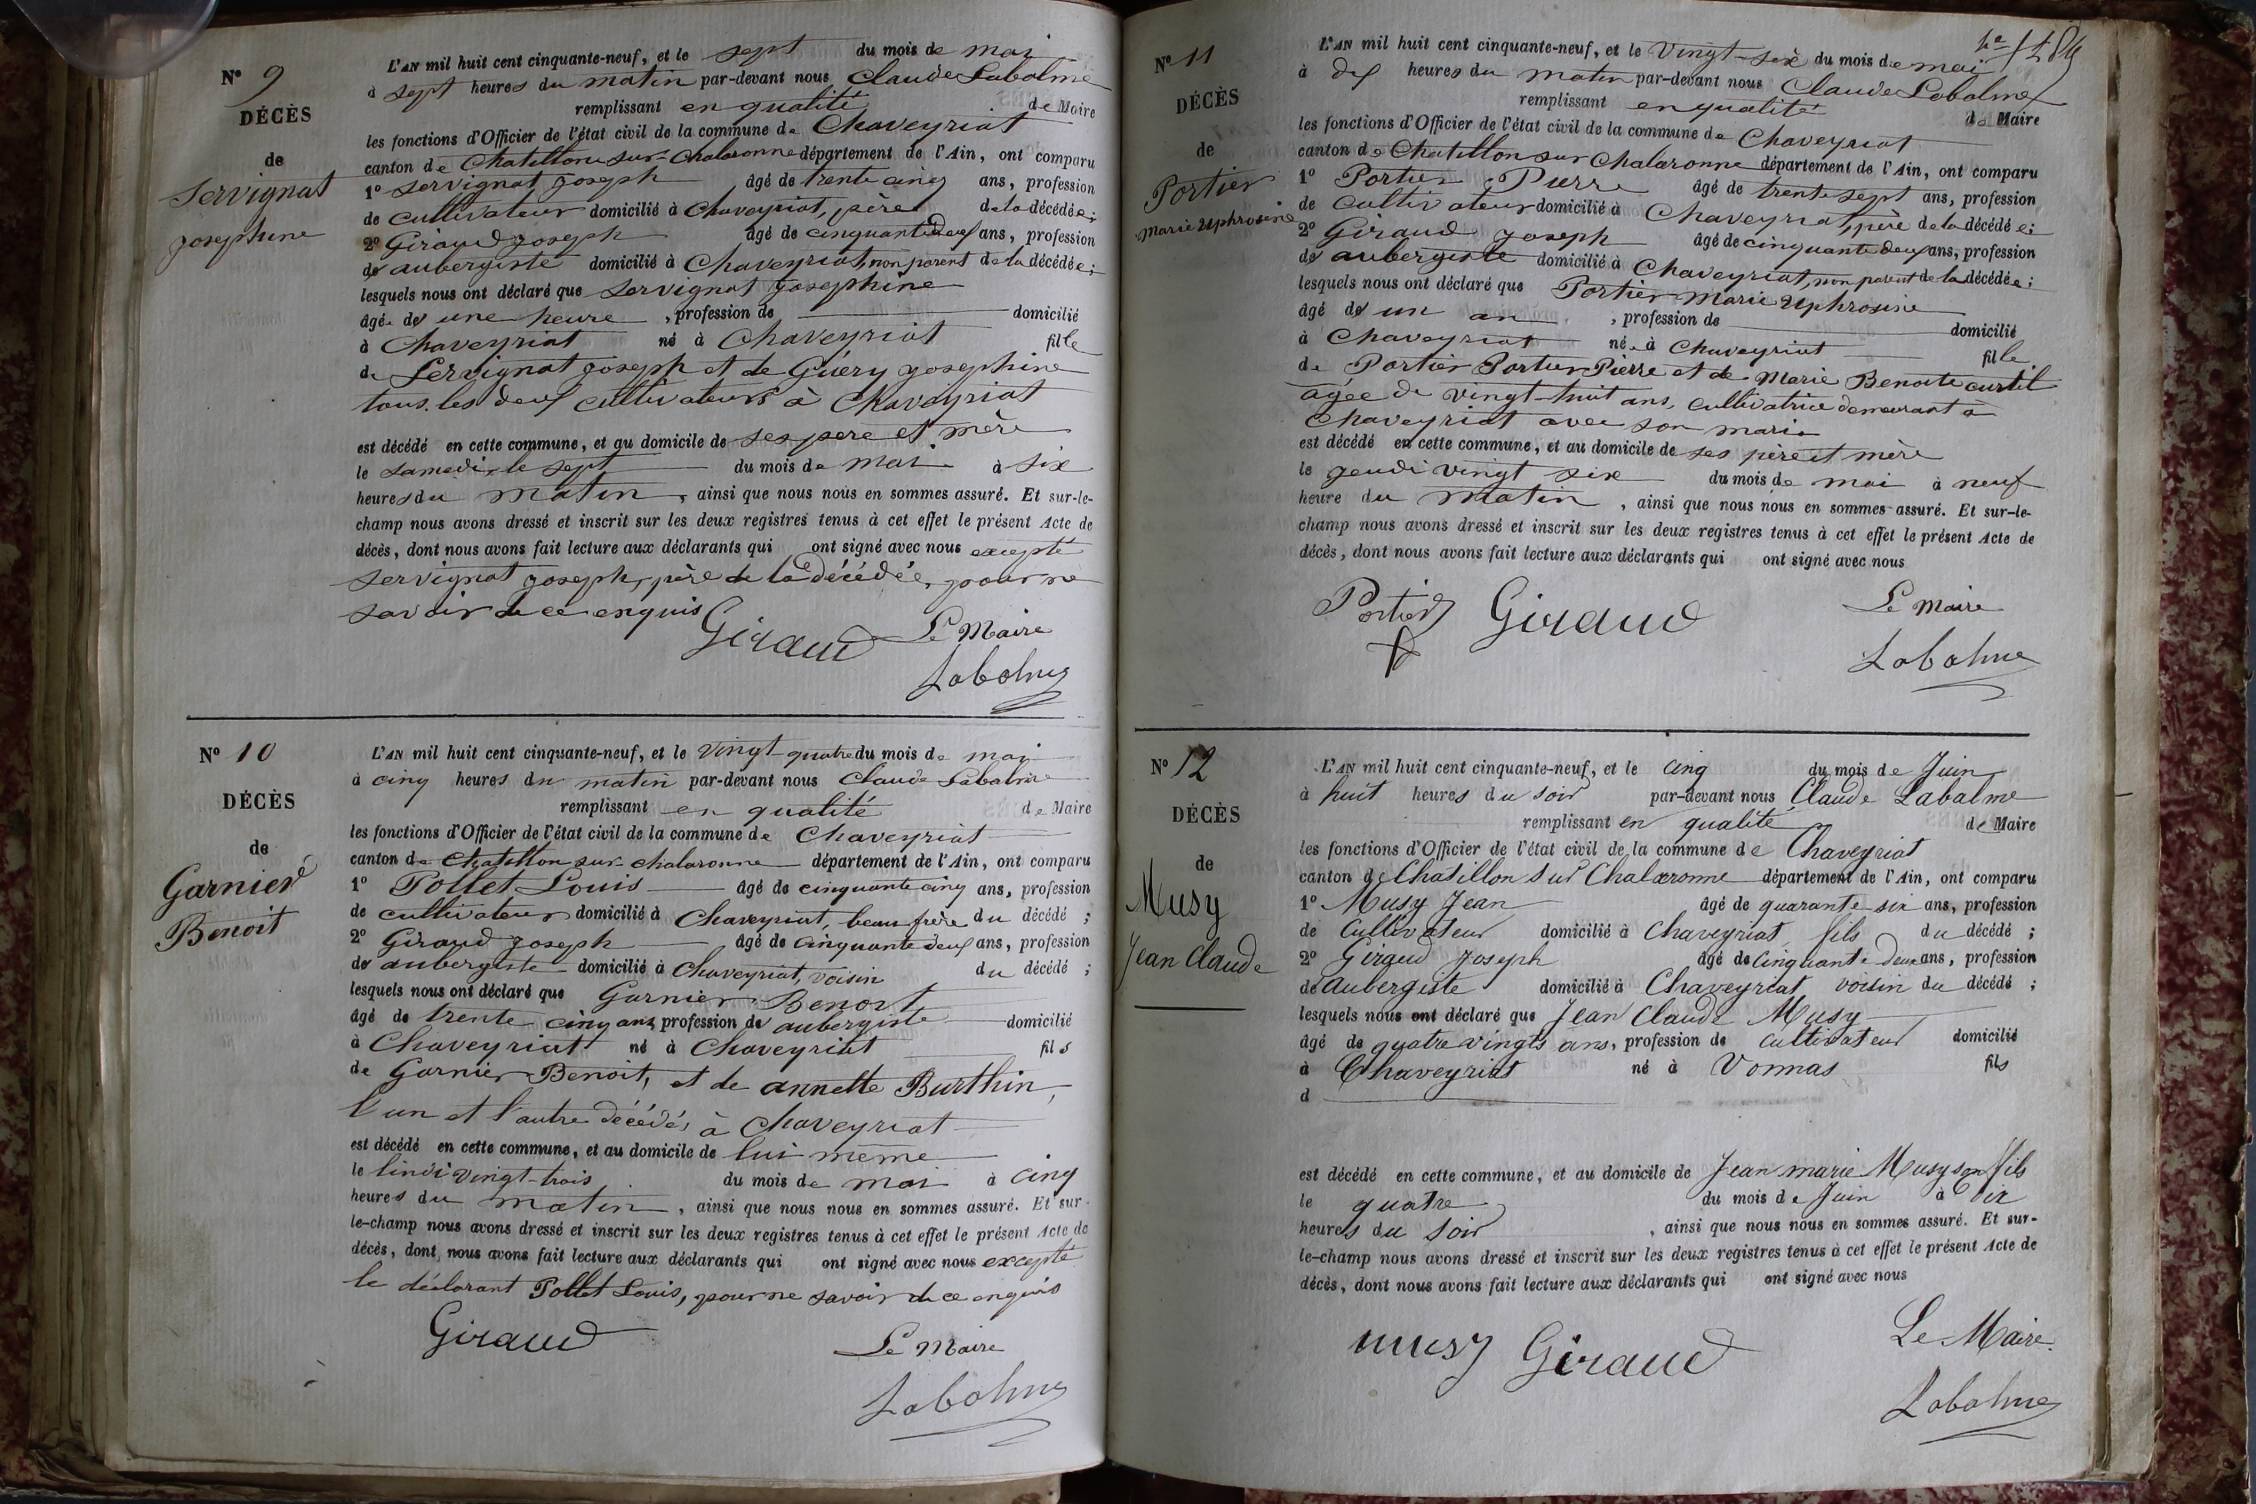 N° 9
DÉCÈS
de
Servignat
Josephine
L'AN mil huit cent cinquante-neuf, et le sept du mois de mai
à sept heures du matin par-devant nous Claude Labalme
remplissant en qualité de Maire
les fonctions d'Officier de l'état civil de la commune de Chaveyriat
canton de Chatillon sur-Chalaronne département de l'Ain, ont comparu
1° Servignat Joseph âgé de trente cinq ans, profession
de cultivateur domicilié à Chaveyriat, père de la décédée;
2° Giraud Joseph âgé de cinquante deux ans, profession
de aubergiste domicilié à Chaveyriat, non parent de la décédée;
lesquels nous ont déclaré que Servignat Josephine
âgé de une heure, profession de domicilié
à Chaveyriat né à Chaveyriat fille
de Servignat Joseph et de Guéry Josephine
tous les deux cultivateurs à Chaveyriat
est décédé en cette commune, et au domicile de ses pere et mère
le samedi, le sept du mois de mai à six
heures du matin, ainsi que nous nous en sommes assuré. Et sur-le-
champ nous avons dressé et inscrit sur les deux registres tenus à cet effet le présent Acte de
décès, dont nous avons fait lecture aux déclarants qui ont signé avec nous excepté
Servignat Joseph, père de la décédée, pour ne
savoir de ce enquis
Giraud Le Maire
Labalme
N° 10
DÉCÈS
de
Garnier
Benoit
L'AN mil huit cent cinquante-neuf, et le vingt-quatre du mois de mai
à cinq heures du matin par-devant nous Claude Labalme
remplissant en qualité de Maire
les fonctions d'Officier de l'état civil de la commune de Chaveyriat
canton de Chatillon sur-chalaronne département de l'Ain, ont comparu
1° Pollet Louis âgé de cinquante cinq ans, profession
de cultivateur domicilié à Chaveyriat, beau frère du décédé;
2° Giraud Joseph âgé de cinquante deux ans, profession
de aubergiste domicilié à Chaveyriat, voisin du décédé;
lesquels nous ont déclaré que Garnier Benoit
âgé de trente cinq ans, profession de aubergiste domicilié
à Chaveyriat né à Chaveyriat fils
de Garnier Benoit, et de annette Burthin,
l'un et l'autre décédés à Chaveyriat
est décédé en cette commune, et au domicile de lui même
le lindi vingt-trois du mois de mai à cinq
heures du matin, ainsi que nous nous en sommes assuré. Et sur-
le-champ nous avons dressé et inscrit sur les deux registres tenus à cet effet le présent Acte de
décès, dont nous avons fait lecture aux déclarants qui ont signé avec nous excepté
le déclarant Pollet Louis, pour ne savoir de ce enquis
Giraud Le Maire
Labalme
N° 11
DÉCÈS
de
Portier
Marie Uphrosine
L'AN mil huit cent cinquante-neuf, et le vingt-six du mois de mai
à dix heures du matin par-devant nous Claude Labalme
remplissant en qualité de Maire
les fonctions d'Officier de l'état civil de la commune de Chaveyriat
canton de Chatillon sur Chalaronne département de l'Ain, ont comparu
1° Portier Pierre âgé de trente sept ans, profession
de cultivateur domicilié à Chaveyriat, père de la décédée;
2° Giraud Joseph âgé de cinquante deux ans, profession
de aubergiste domicilié à Chaveyriat, non parent de la décédée;
lesquels nous ont déclaré que Portier Marie Uphrosine
âgé de un an, profession de domicilié
à Chaveyriat née à Chaveyriat fille
de Portier Portier Pierre et de Marie Benoite curtil
agée de vingt-huit ans, cultivatrice demeurant à
Chaveyriat avec son mari
est décédé en cette commune, et au domicile de ses père et mère
le jeudi vingt six du mois de mai à neuf
heure du matin, ainsi que nous nous en sommes assuré. Et sur-le-
champ nous avons dressé et inscrit sur les deux registres tenus à cet effet le présent Acte de
décès, dont nous avons fait lecture aux déclarants qui ont signé avec nous
Portier Giraud Le Maire
Labalme
N° 12
DÉCÈS
de
Musy
Jean Claude
L'AN mil huit cent cinquante-neuf, et le cinq du mois de Juin
à huit heures du soir par-devant nous Claude Labalme
remplissant en qualité de Maire
les fonctions d'Officier de l'état civil de la commune de Chaveyriat
canton de Chatillon sur Chalaronne département de l'Ain, ont comparu
1° Musy Jean âgé de quarante six ans, profession
de Cultivateur domicilié à Chaveyriat, fils du décédé;
2° Giraud Joseph âgé de Cinquante-deux ans, profession
de aubergiste domicilié à Chaveyriat voisin du décédé;
lesquels nous ont déclaré que Jean Claude Musy
âgé de quatre vingts ans, profession de cultivateur domicilié
à Chaveyriat né à Vonnas fils
d
est décédé en cette commune, et au domicile de Jean marie Musy son fils
le quatre du mois de Juin à dix
heures du soir, ainsi que nous nous en sommes assuré. Et sur-
le-champ nous avons dressé et inscrit sur les deux registres tenus à cet effet le présent Acte de
décès, dont nous avons fait lecture aux déclarants qui ont signé avec nous
musy Giraud Le Maire
Labalme